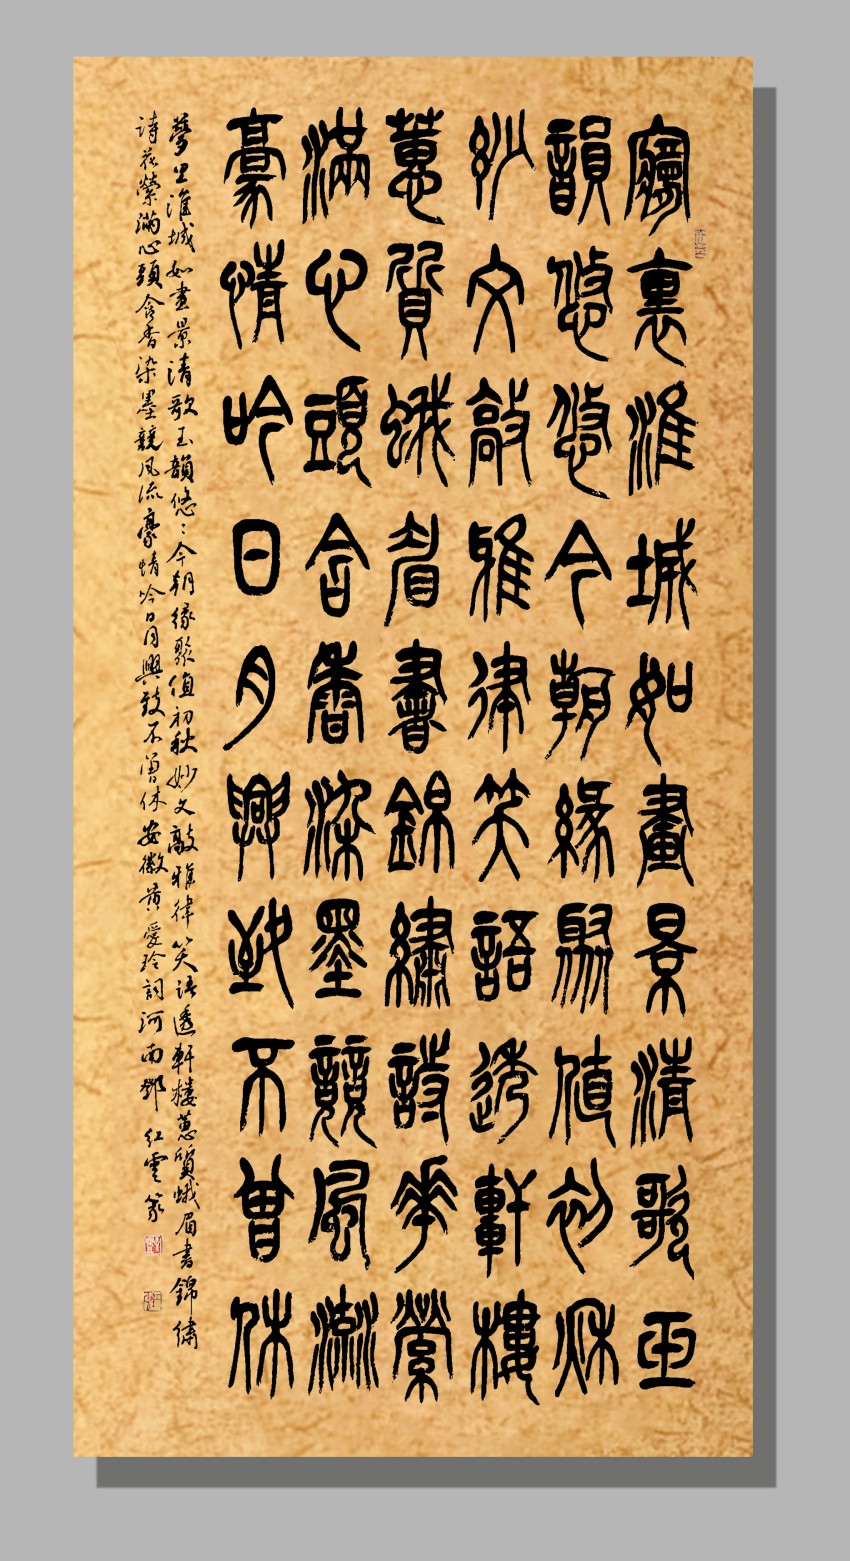 夢裏淮城如畫景清歌玉
韻悠悠今朝緣聚值初秋
妙文敲雅律笑語透軒樓
蕙質蛾眉書錦繡詩花縈
滿心頭含香染墨競風流
豪情吟日月興致不曾休
夢里淮城如畫景清歌玉韻悠〻今朝緣聚值初秋妙文敲雅律笑語透軒楼蕙質蛾眉書錦繡
詩花縈滿心頭含香染墨競風流豪情吟日月興致不曾休安徽黄愛玲詞河南鄧红雲篆